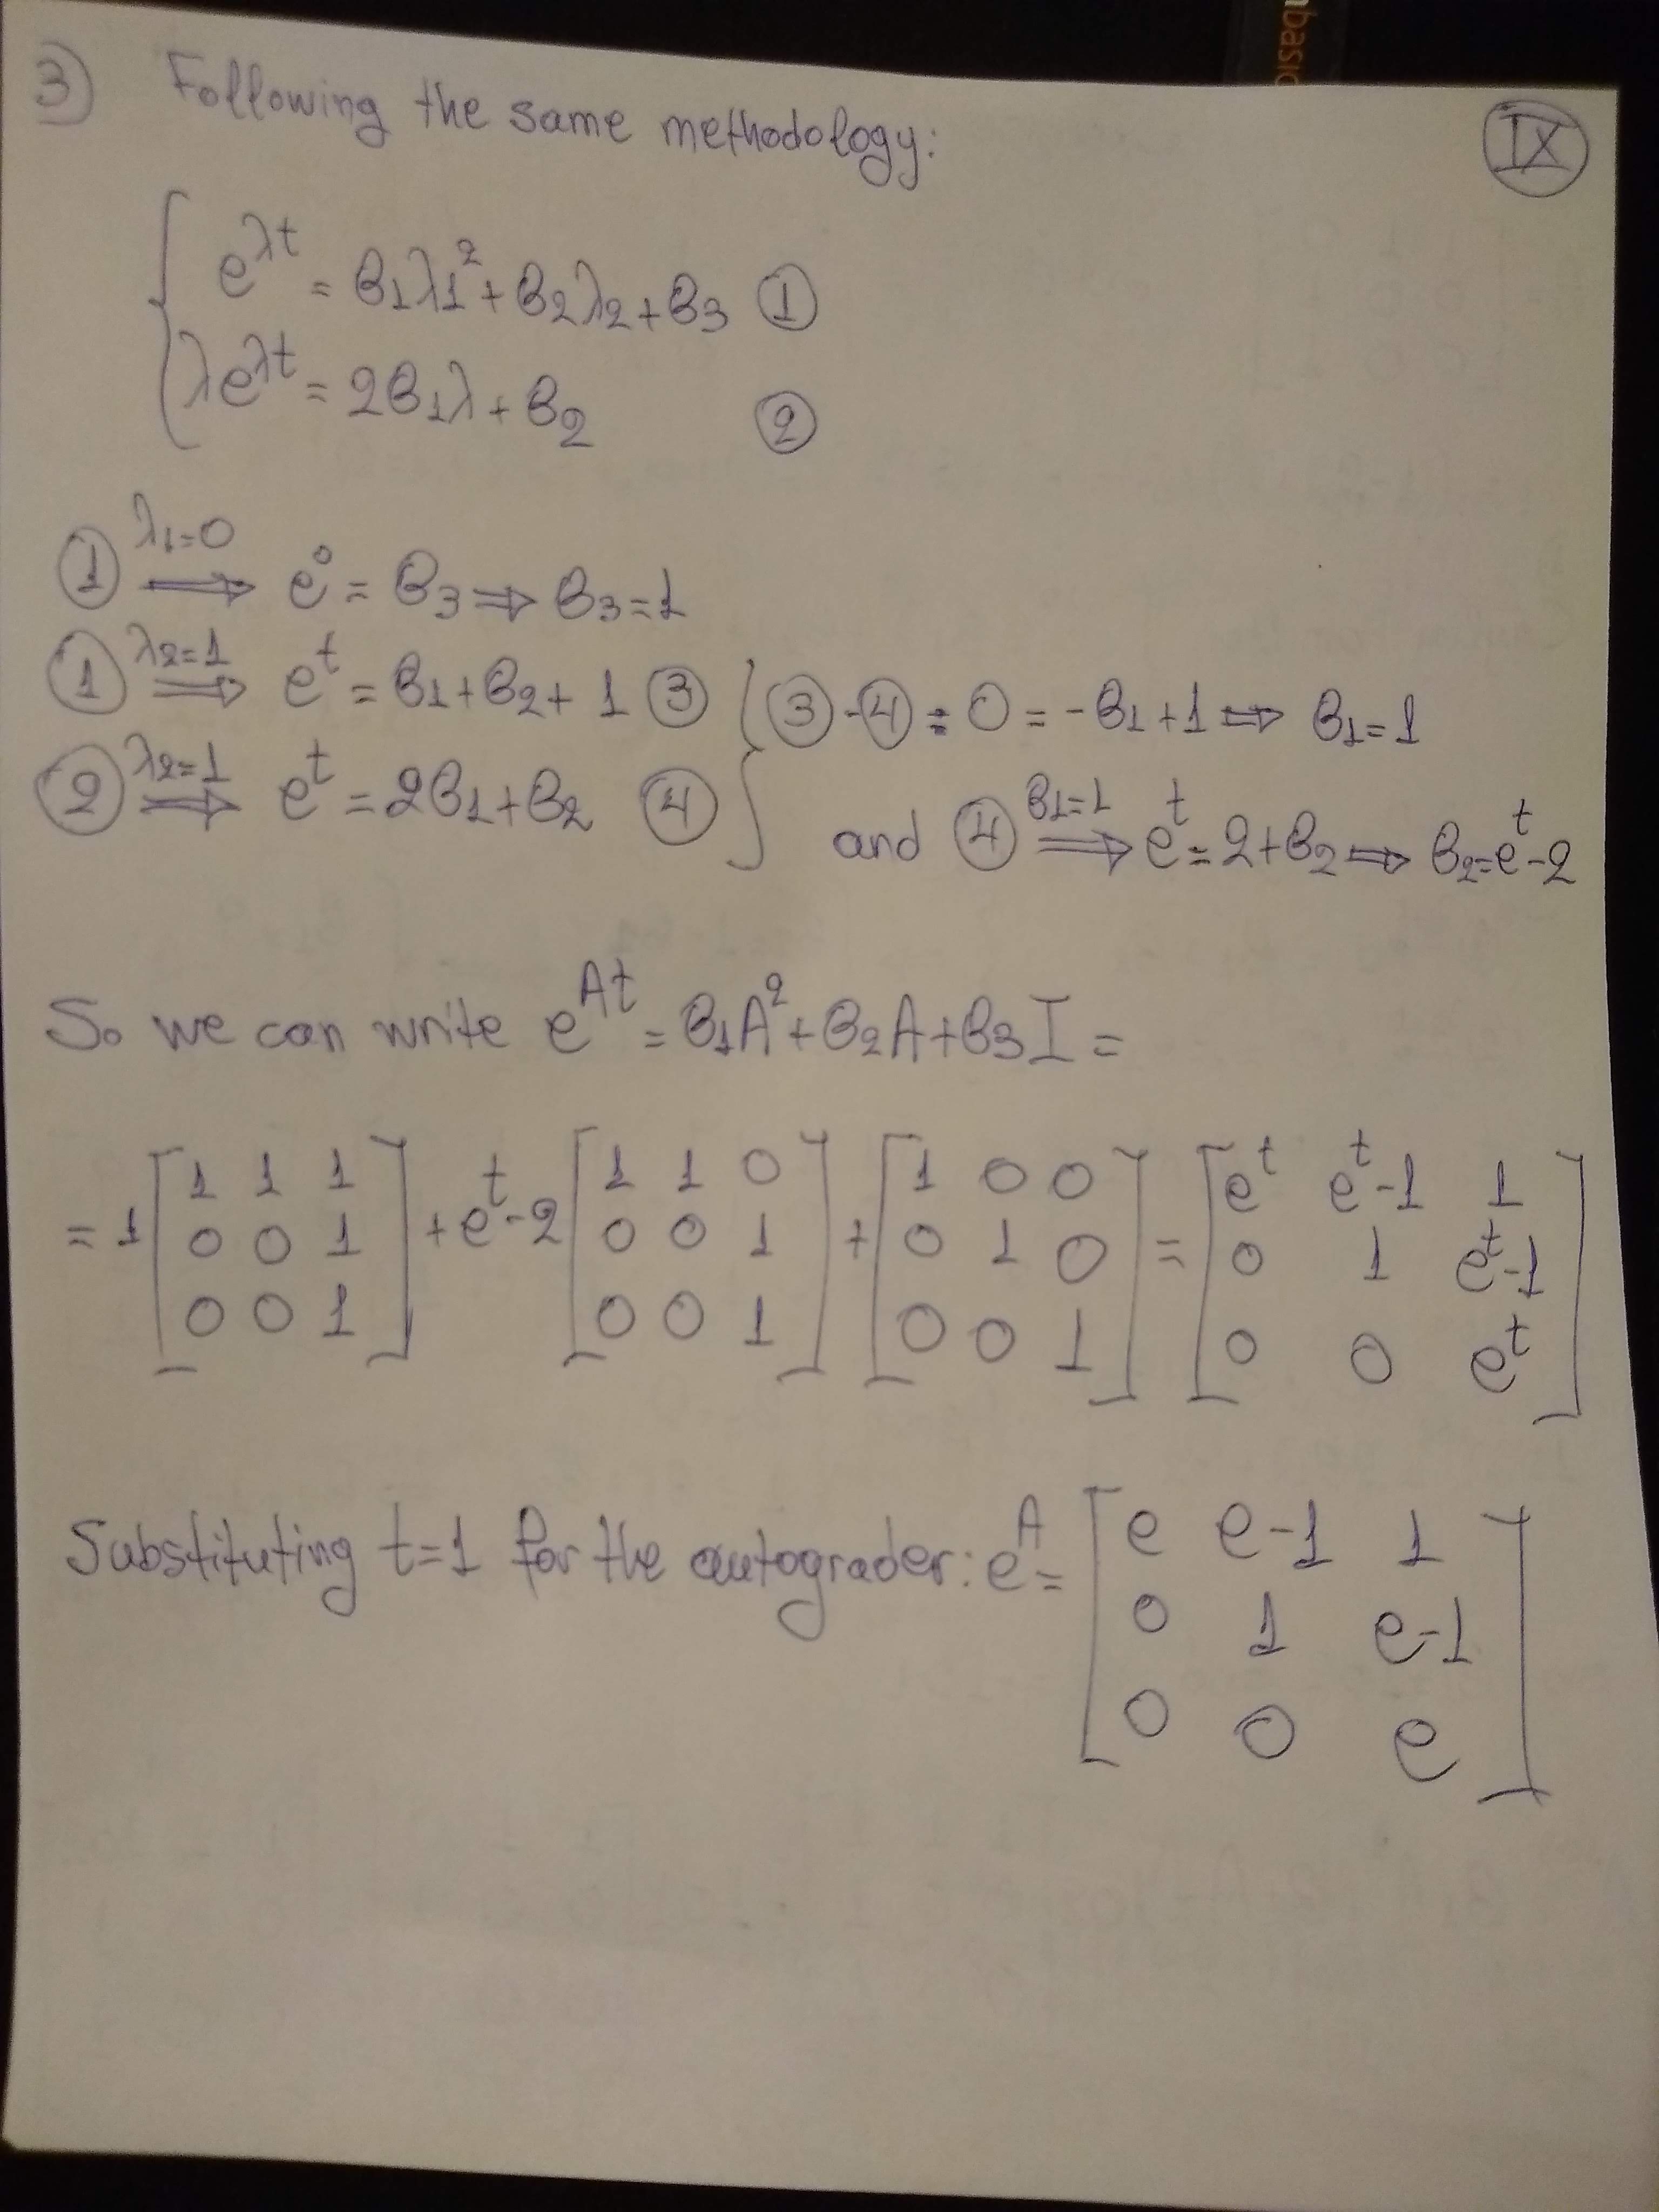 nbasic
3) Following the same methodology:
IX
{ e^{λt} = B₁λ1² + B₂λ₂ + B₃ ①
λe^{λt} = 2B₁λ + B₂ ②
① ⟹^{λ₁=0} e⁰ = B₃ ⟹ B₃ = 1
① ⟹^{λ₂=1} e^t = B₁ + B₂ + 1 ③ } ③ - ④ : 0 = -B₁ + 1 ⟹ B₁ = 1
② ⟹^{λ₂=1} e^t = 2B₁ + B₂ ④ } and ④ ⟹^{B₁=1} e^t = 2 + B₂ ⟹ B₂ = e^t - 2
So we can write e^{At} = B₁A² + B₂A + B₃I =
= 1 [1 1 1; 0 0 1; 0 0 1] + e^t - 2 [1 1 0; 0 0 1; 0 0 1] + [1 0 0; 0 1 0; 0 0 1] = [e^t e^t-1 1; 0 1 e^t-1; 0 0 e^t]
Substituting t=1 for the autograder: e^A = [e e-1 1; 0 1 e-1; 0 0 e]